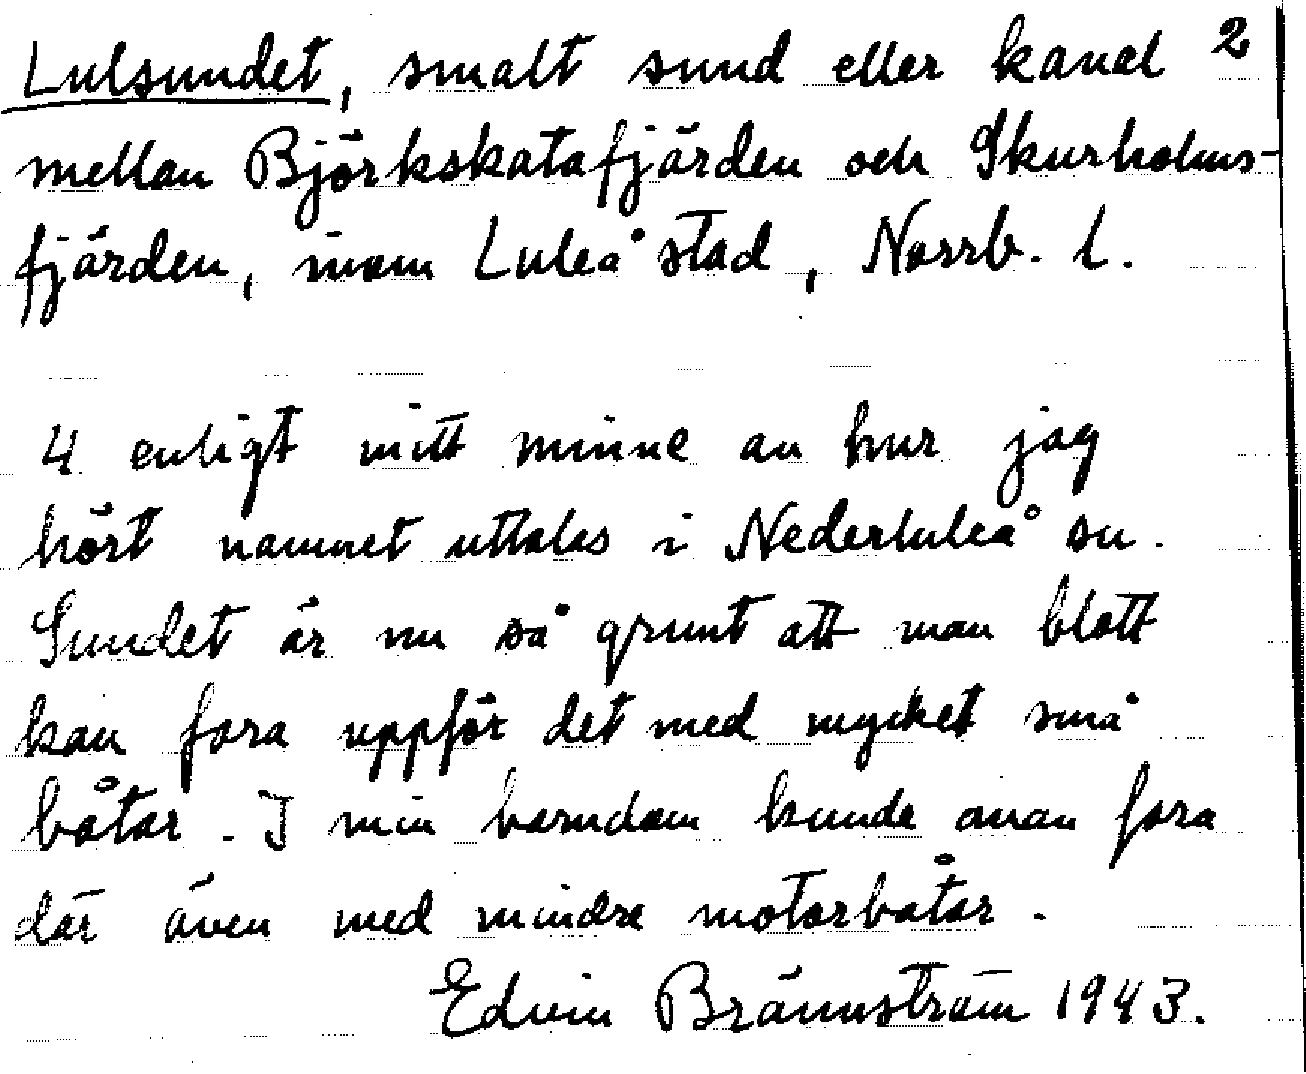 Lulsundet, smalt sund eller kanal 2
mellan Björkskatafjärden och Skurholms-
fjärden, inom Luleå stad, Norrb. l.
U enligt mitt minne av hur jag
hört namnet uttalas i Nederluleå sn.
Sundet är nu så grunt att man blott
kan fara uppför det med mycket små
båtar. I min barndom kunde man fara
där även med mindre motorbåtar.
Edvin Brännström 1943.